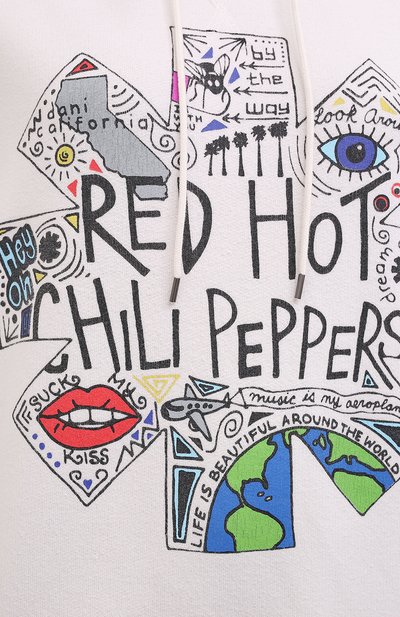 dani
california
by
the
way
look Around
RED HOT
Hey
Oh
Dream
CHILI PEPPERS
SUCK MY
KISS
music is my aeroplane
LIFE IS BEAUTIFUL AROUND THE WORLD